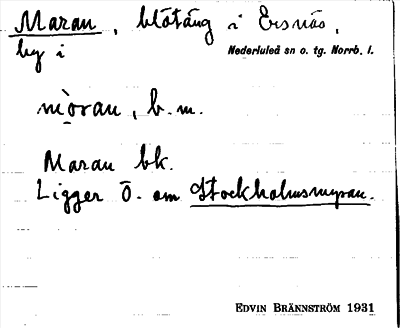 Maran, blötäng i Ersnäs,
by i Nederluleå sn o. tg. Norrb. l.
mò̤ran, b. m.
Maran bk.
Ligger Ö. om Stockholmsmyran.
EDVIN BRÄNNSTRÖM 1931